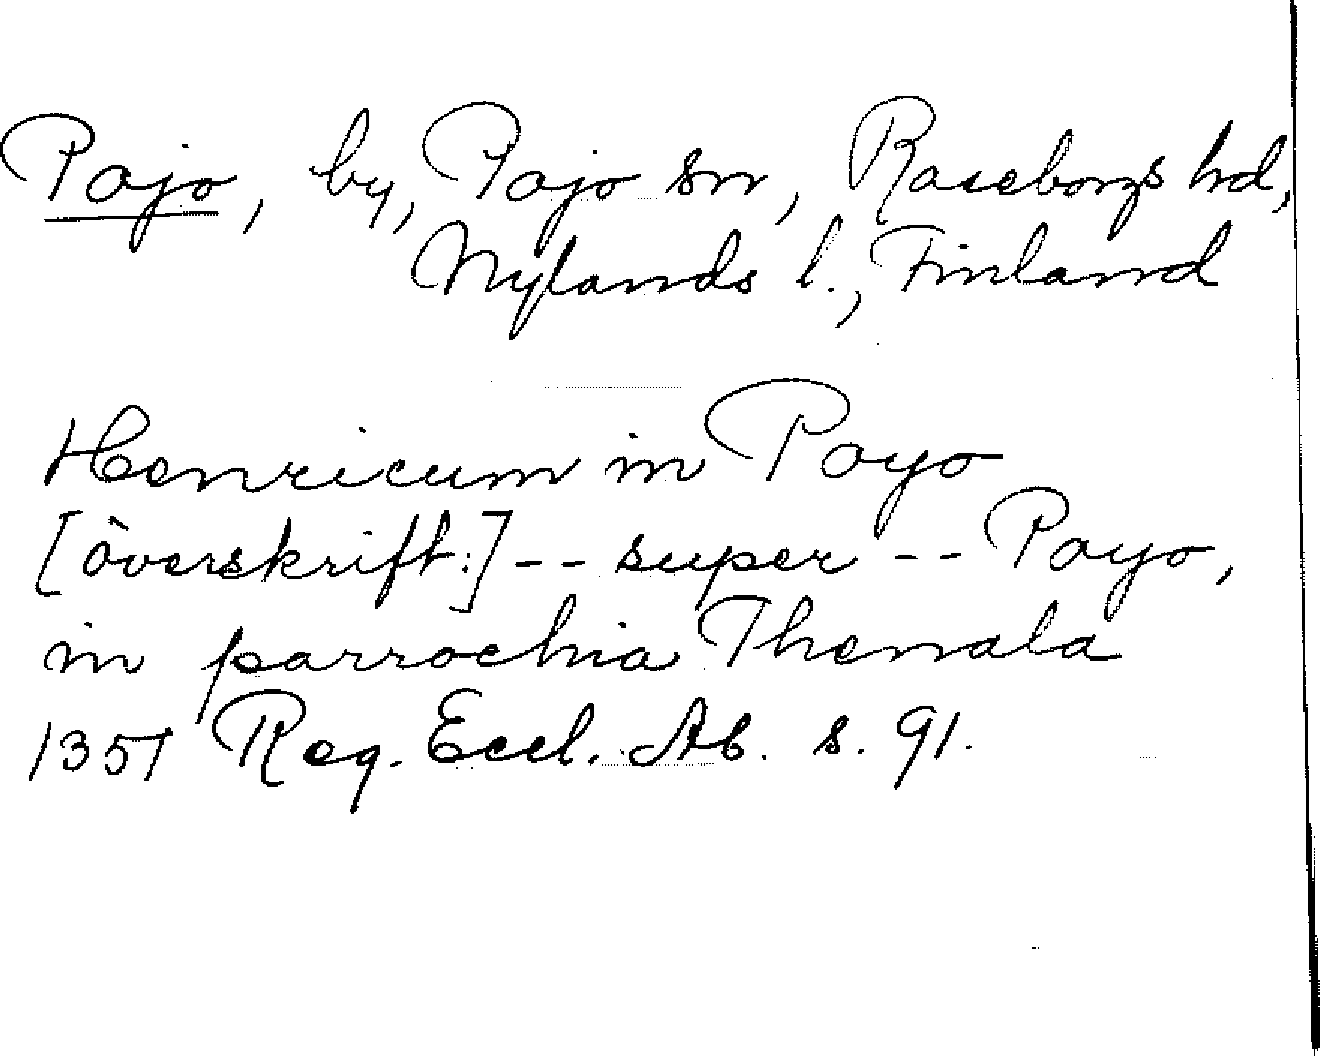 Pojo, by, Pojo sn, Raseborgs hd,
Nylands l., Finland
Henricum in Poyo
[överskrift:] -- super -- Poyo,
in parrochia Thenala
1351 Reg. Eccl. Ab. s. 91.